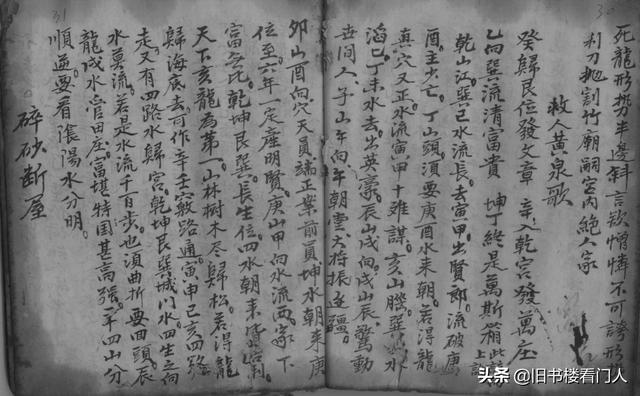 30
死龍形势半邊斜言欲憎憐不可誇形
利刀抛割竹廟嗣宫内絶人家
救人黄泉歌
癸歸艮位發文章 辛入乾宫發萬庄
乙向巽流清富貴 坤丁終是萬斯箱
乾山江巽巳水流長去寅甲出賢郎流破庚
酉主少亡丁山頭須要庚酉水来朝若得龍
真穴又正水流寅甲十难謀亥山騰巽水
滔巳丁未水去出英豪辰山戌向戌山辰驚動
世间人子山午向午朝雲大将振逐疆
31
卯山酉向穴天員端正案前員坤水朝来庚
位至六年一定産明賢庚山甲向水流两家下
富無比乾坤艮巽長生位四水朝来皆
天下亥龍為第一山林樹木尽歸松若得龍
歸海底去可作辛壬竅路通寅申巳亥四
走又有四路水歸宫乾坤艮巽城门水四生之向
水莫流若是水流千百步也須曲折要回頭辰
龍戌水管田庄富堪特国甚高强一平四山分
順逆要看陰陽水分明
碎砂断屋
头条 @旧书楼看门人